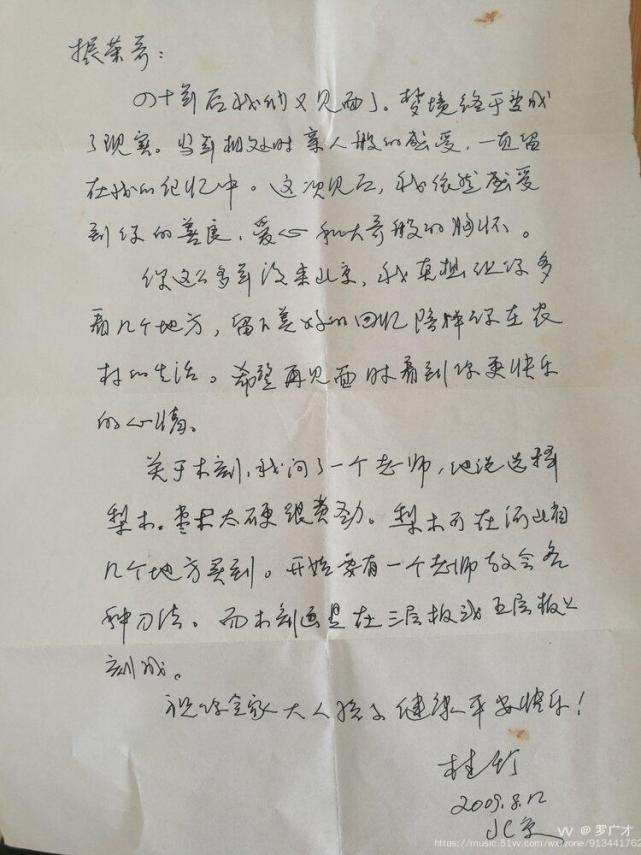 振荣哥：
四十年后我们又见面了。梦境终于变成
了现实。当年相处时亲人般的感受，一直留
在我的记忆中。这次见后，我依然感受
到你的善良，爱心和大哥般的胸怀。
你这么多年没来北京，我真想让你多
看几个地方，留下美好的回忆陪伴你在农
村的生活。希望再见面时看到你更快乐
的心情。
关于木刻，我问了一个老师，他说选择
梨木。枣木太硬很费劲。梨木可在河北省
几个地方买到。开始要有一个老师教会各
种刀法。而木刻画是在三层板或五层板上
刻成。
祝你全家大人孩子健康平安快乐！
桂竹
2009.8.12
北京
@罗广才